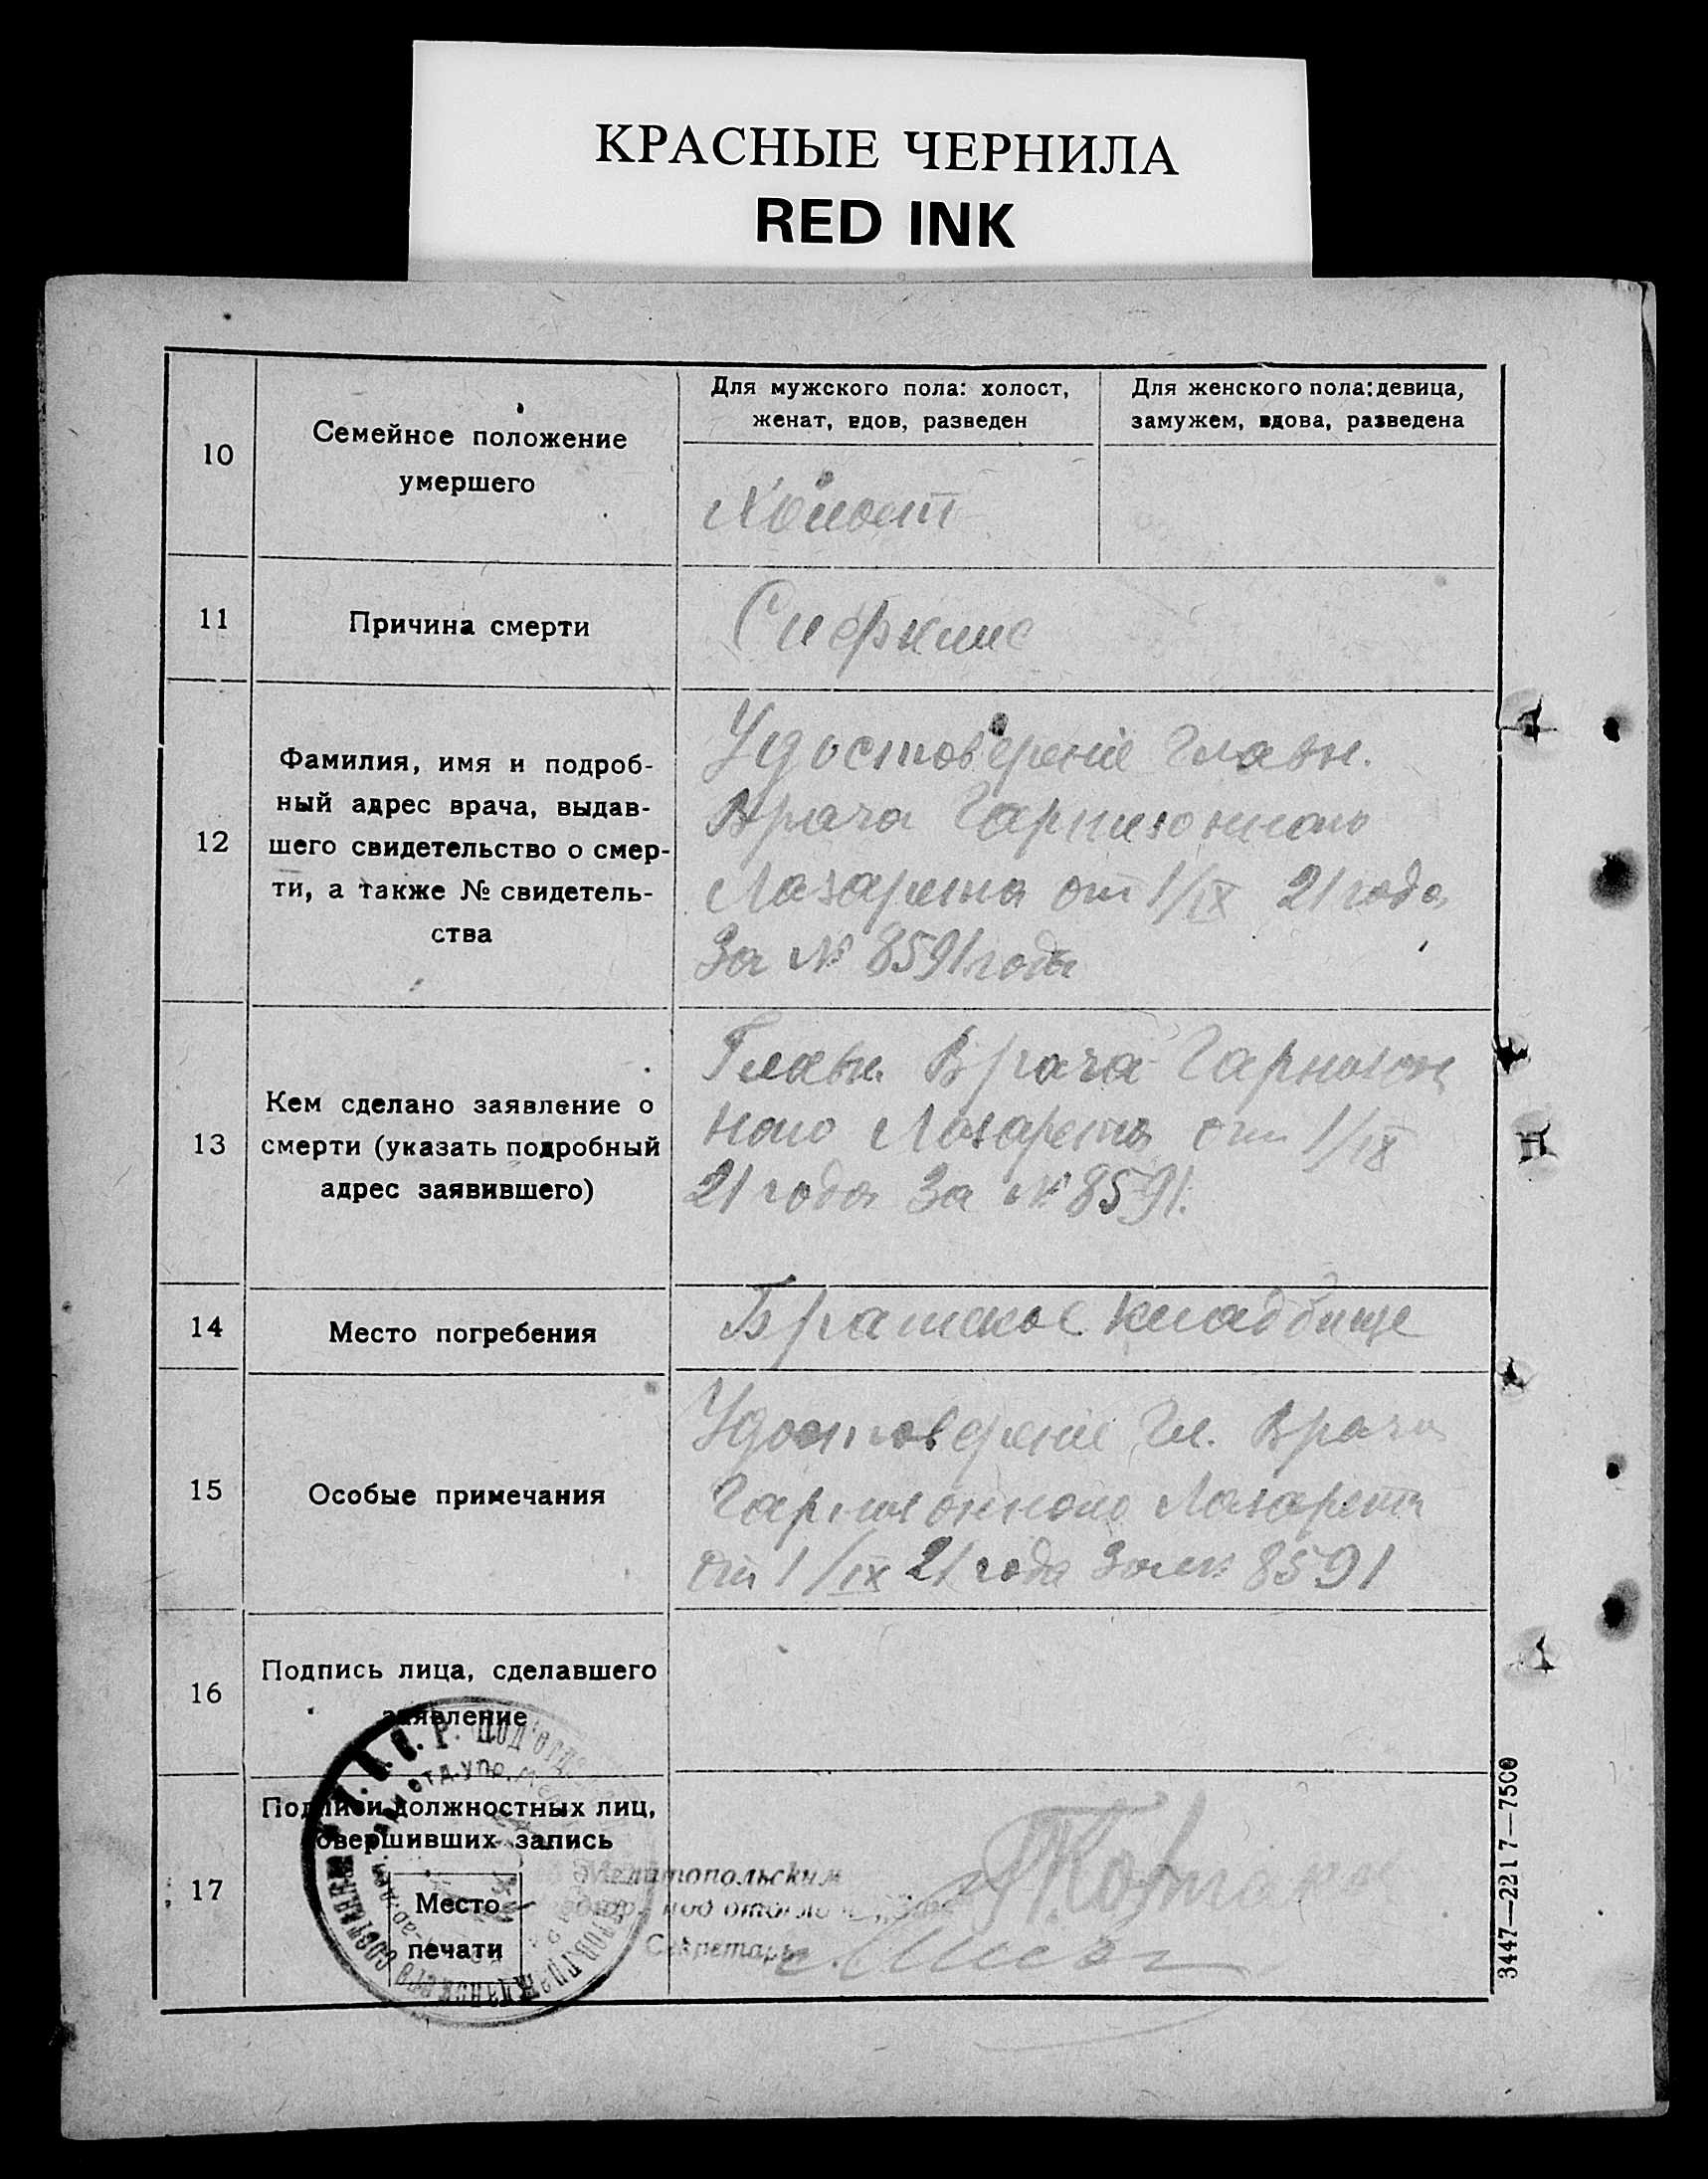 КРАСНЫЕ ЧЕРНИЛА
RED INK
10
Семейное положение
умершего
Для мужского пола: холост,
женат, вдов, разведен
Для женского пола: девица,
замужем, вдова, разведена
Холост
11
Причина смерти
12
Фамилия, имя и подроб-
ный адрес врача, выдав-
шего свидетельство о смер-
ти, а также № свидетель-
ства
Удостоверенiе Главн.
Врача Гарнизонного
Лазарета от 1/IX 21 года
За № 8591 года
13
Кем сделано заявление о
смерти (указать подробный
адрес заявившего)
Главн. Врача Гарнизон
ного Лазарета от 1/IX
21 года За № 8591.
14
Место погребения
Братское кладбище
15
Особые примечания
Удостоверенiе Гл. Врача
Гарнизонного Лазарета
от 1/IX 21 года За № 8591
16
Подпись лица, сделавшего
заявление
17
Подписи должностных лиц,
совершивших запись
Место
печати
Мелитопольским
Секретарь
3447—2217—7500